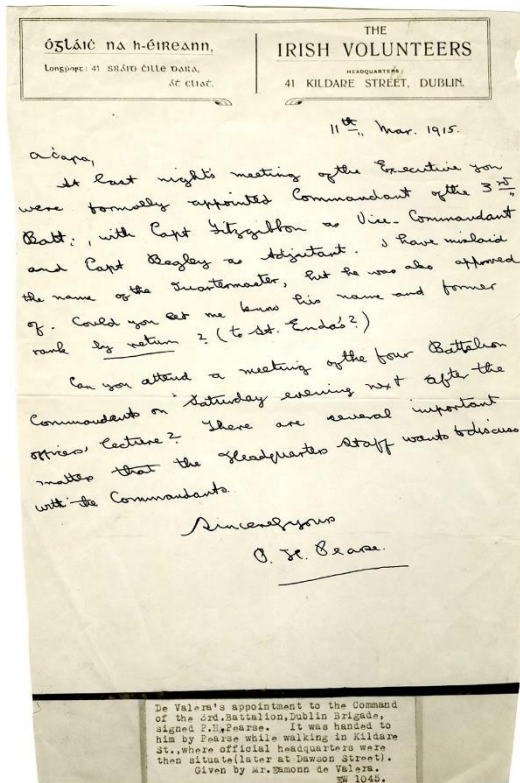 Ógláiċ na h-Éireann,
Longṗort: 41 Sráid Ċille Dara,
Áṫ Cliaṫ.
THE
IRISH VOLUNTEERS
HEADQUARTERS:
41 KILDARE STREET, DUBLIN.
11th, Mar. 1915.
A ċara,
At last night's meeting of the Executive you
were formally appointed Commandant of the 3rd
Batt., with Capt Fitzgibbon as Vice-Commandant
and Capt Begley as Adjutant. I have mislaid
the name of the Quartermaster, but he was also approved
of. Could you let me know his name and former
rank by return? (to St. Enda's?)
Can you attend a meeting of the four Battalion
Commandants on Saturday evening next after the
officers' lecture? There are several important
matters that the Headquarters Staff wants to discuss
with the Commandants.
Sincerely yours
P. H. Pearse.
De Valera's appointment to the Command
of the 3rd.Battalion,Dublin Brigade,
signed P.H.Pearse. It was handed to
him by Pearse while walking in Kildare
St.,where official headquarters were
then situate(later at Dawson Street).
Given by Mr.Eamonn de Valera.
EW 1045.